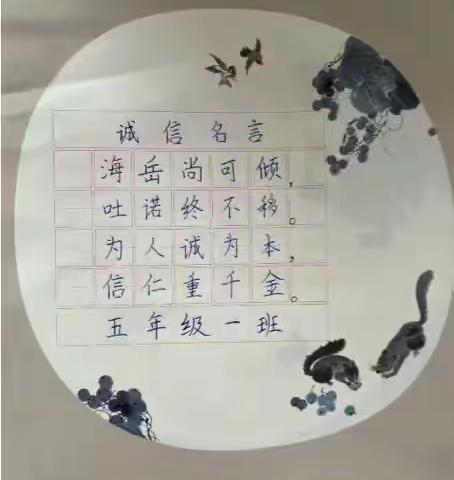 诚信名言
海岳尚可倾，
吐诺终不移。
为人诚为本，
信仁重千金。
五年级一班